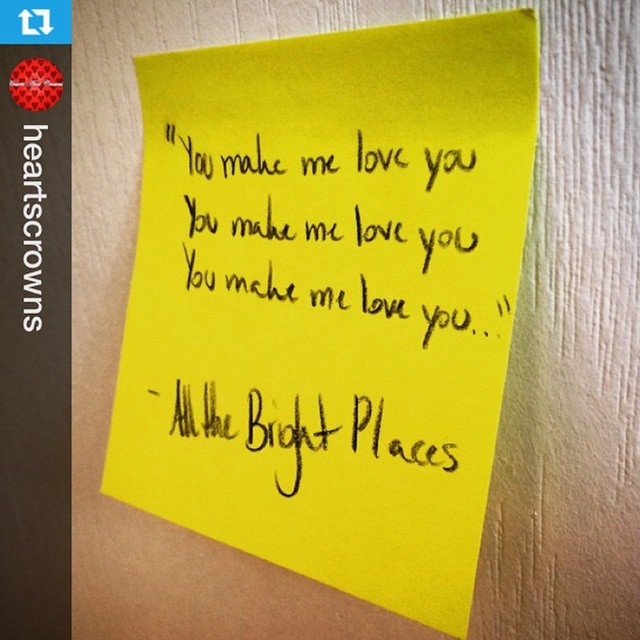 heartscrowns
"You make me love you
You make me love you
You make me love you..."
- All the Bright Places